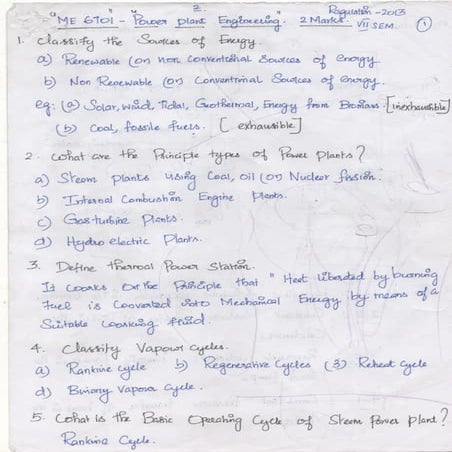 2.
Regulation - 2013
"ME 6701" - "Power plant Engineering". 2 Marks. VII SEM. 1
1. Classify the Sources of Energy.
a) Renewable (or) non Conventional Sources of energy
b) Non Renewable (or) Conventional Sources of energy.
eg: (a) Solar, wind, Tidal, Geothermal, Energy from Biomass. [inexhausible]
(b) Coal, fossile fuels. [exhausible]
2. What are the Principle types of Power Plants?
a) Steam plants using Coal, oil (or) Nuclear fission.
b) Internal Combustion Engine Plants.
c) Gas turbine Plants.
d) Hydro electric Plants.
3. Define thermal Power Station.
It works on the Principle that "Heat liberated by burning
Fuel is Converted into Mechanical Energy by means of a
Suitable working fluid.
4. Classify Vapour Cycles.
a) Rankine cycle b) Regenerative Cycles (3) Reheat Cycle
d) Binary Vapour Cycle.
5. What is the Basic Operating Cycle of Steam Power plant?
Rankine Cycle.